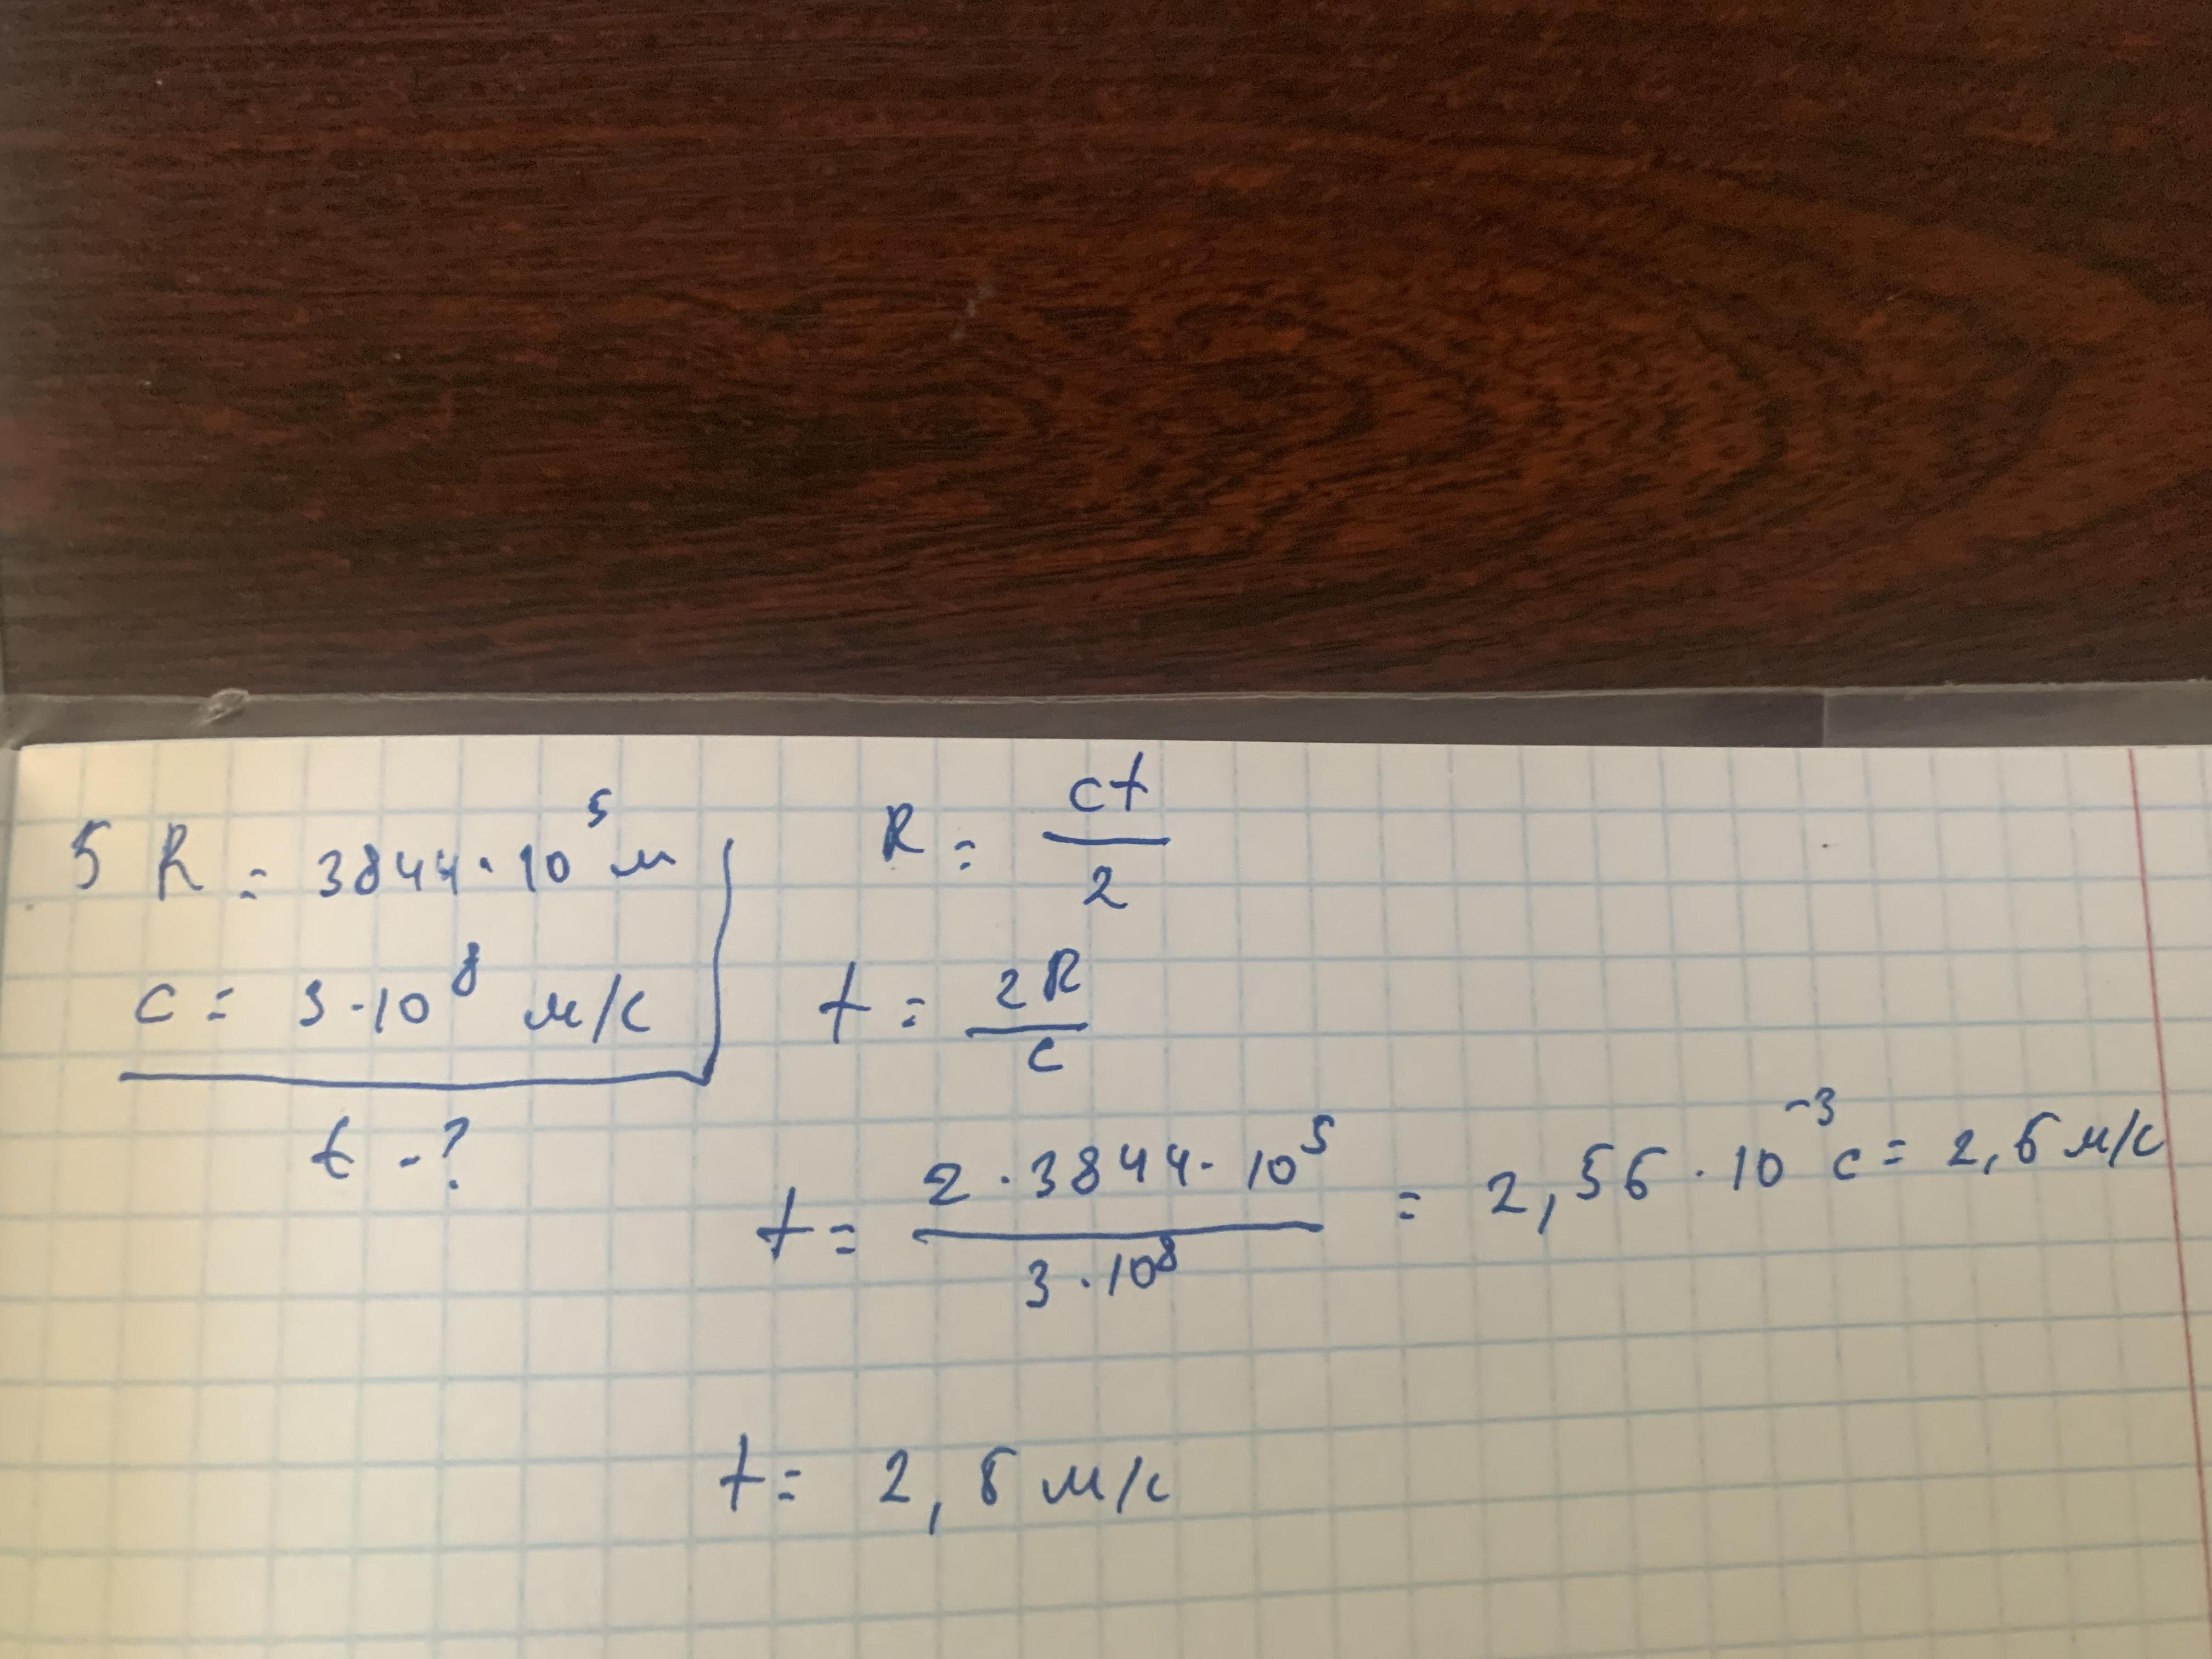 5 R = 3844 · 10⁵ м
c = 3 · 10⁸ м/с
t - ?
R = ct / 2
t = 2R / c
t = 2 · 3844 · 10⁵ / 3 · 10⁸ = 2,56 · 10⁻³ c = 2,6 м/с
t = 2,6 м/с